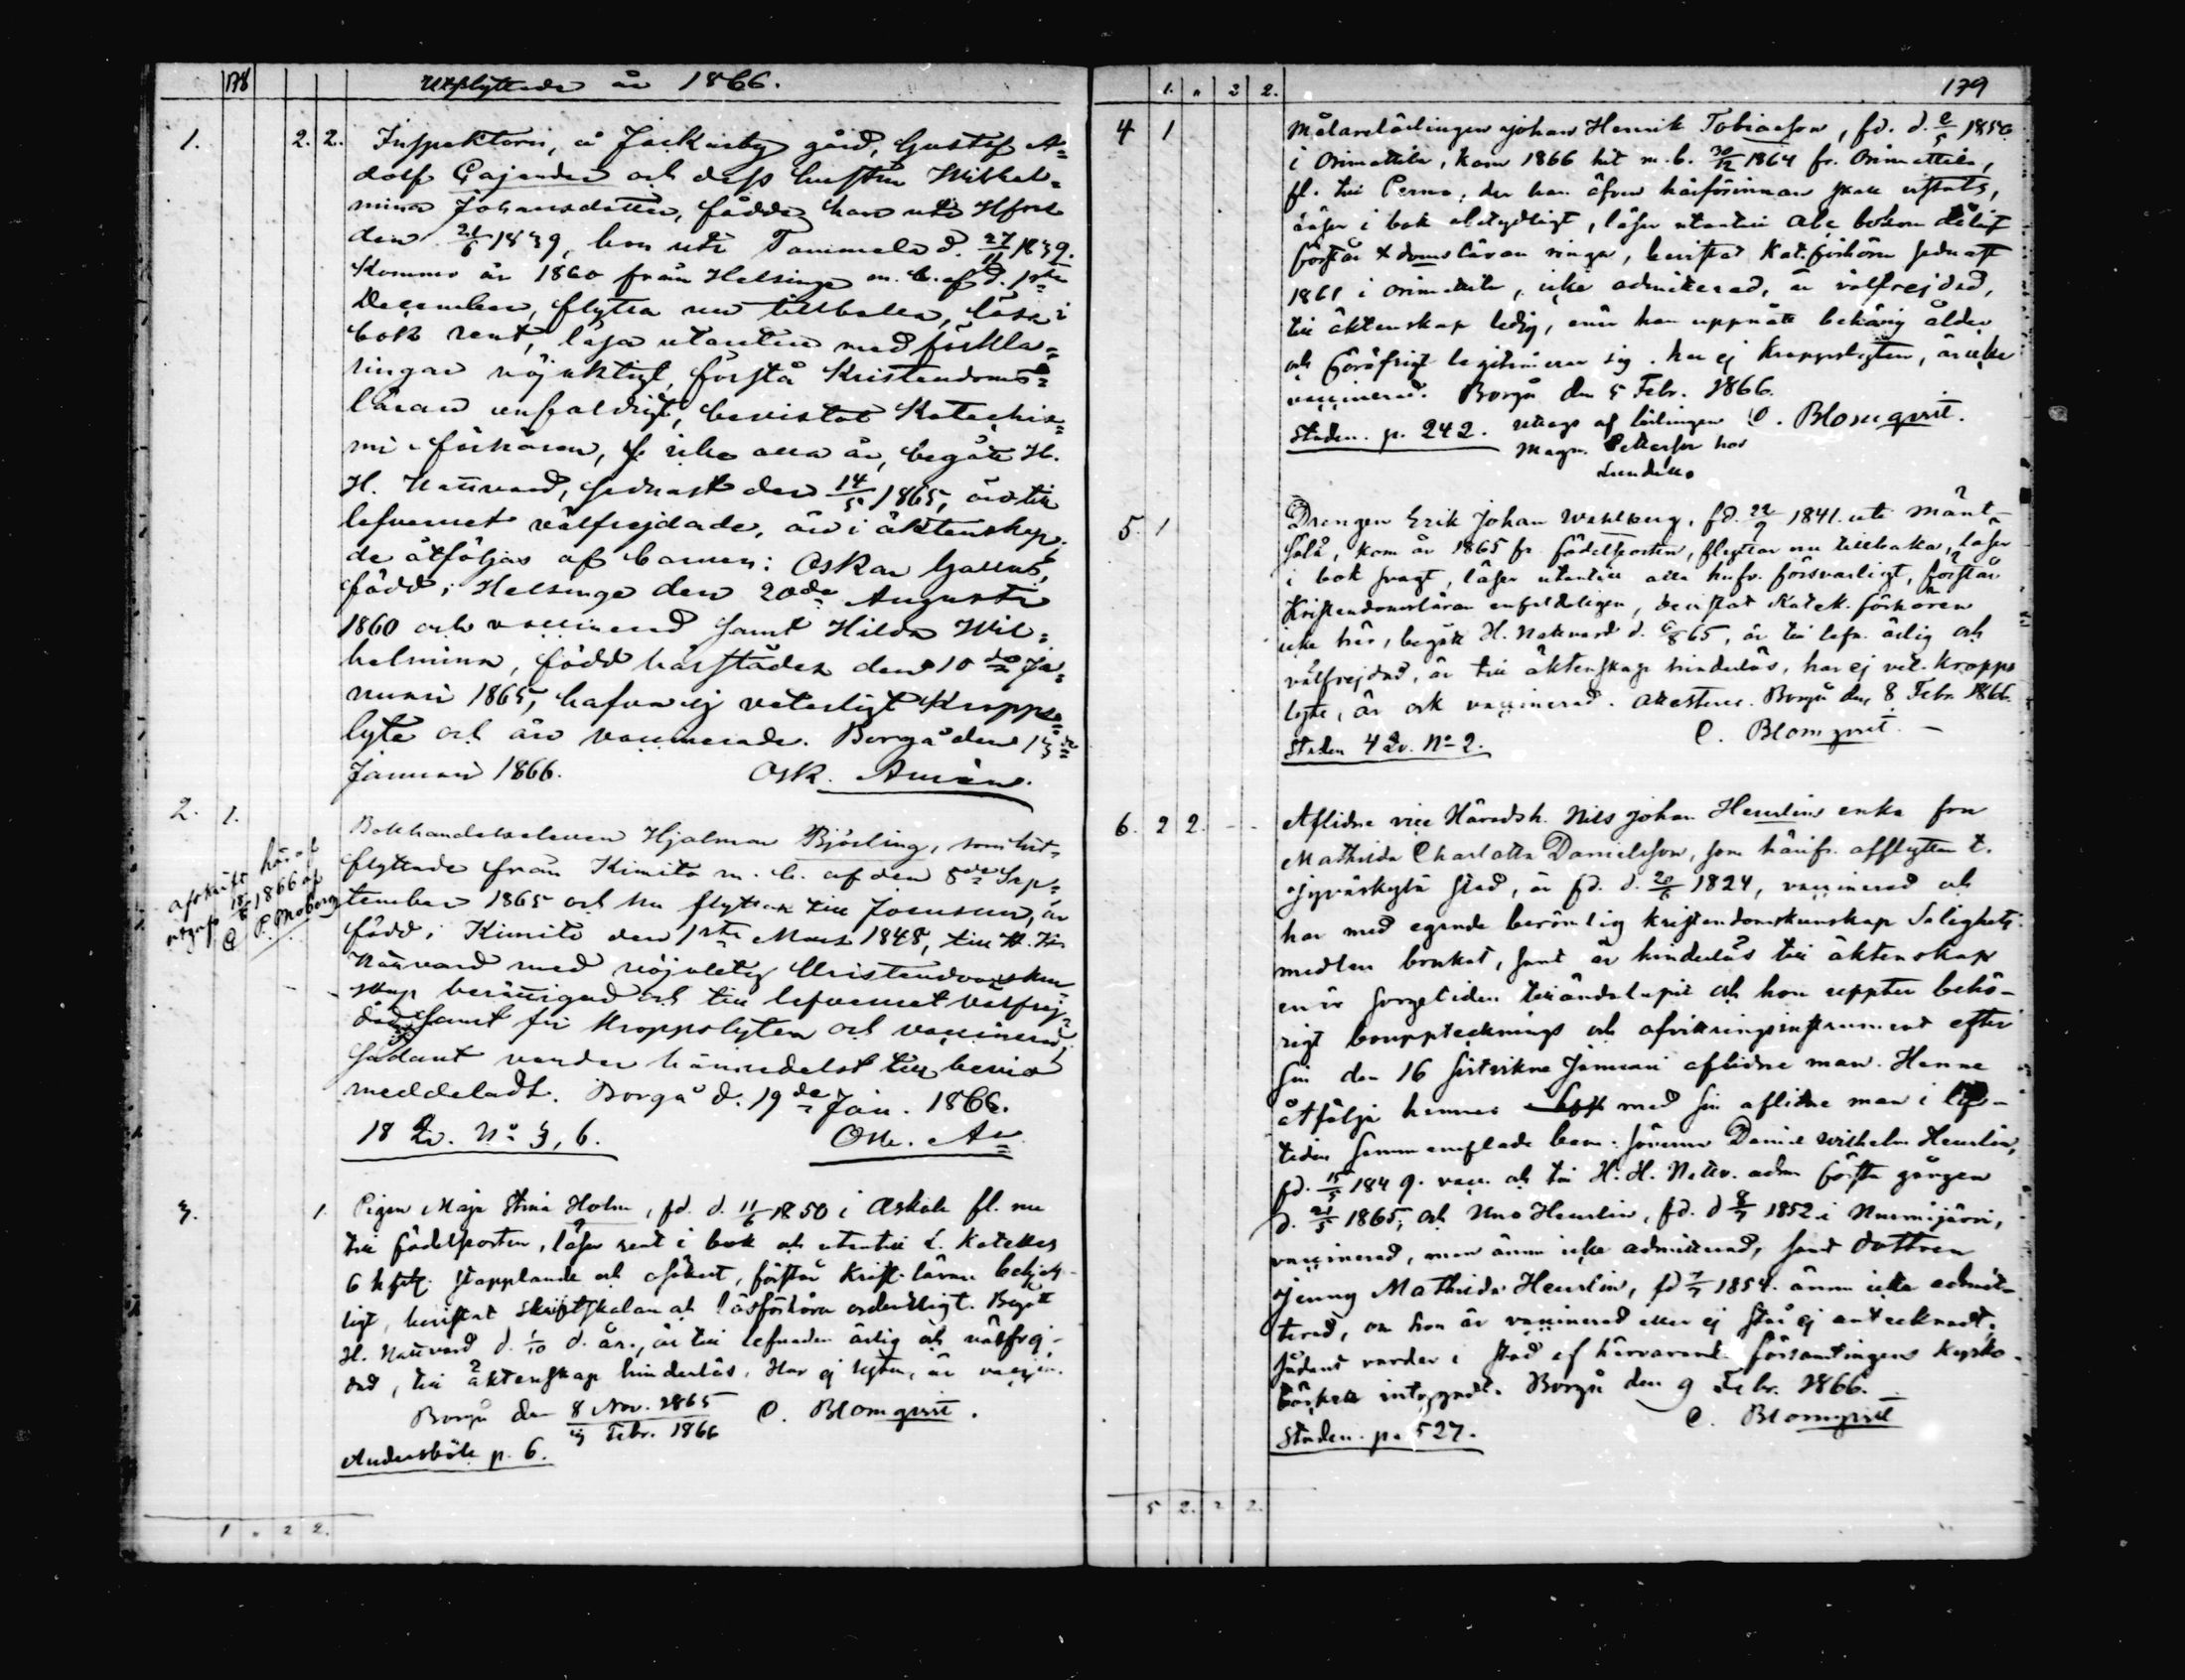 178
Utflyttade år 1866.
1. 2. 2. Inspektorn, å Jackarby gård, Gustaf A=
dolf Gajander och dess hustru Wilhel=
mina Johansdotter, födde han uti Hfors
den 21/6 1839, hon uti Tammela d. 27/11 1839.
Kommo år 1860 från Helsinge m. b. af d. 1sta
December, flytta nu tillbaka, läsa i
bok rent, läsa utantill med förkla=
ringar nöjaktigt, förstå Kristendoms=
läran enfaldigt, bevistat Katechis=
mi förhören, icke alla år, begått H.
H. Nattvard, sednast den 14/5 1865, äro till
lefvernet välfrejdade, äro i äktenskap.
de åtföljas af barnen: Oskar
född i Helsinge den 20de Augusti
1860 och vaccinerad samt Hilda Wil=
helmina, född härstädes den 10de Ja=
nuari 1865, hafva ej veterligt Kropps=
lyte och äro vaccinerade. Borgå den 13de
Januari 1866. Osk.
2. 1. Bokhandelseleven Hjalmar Björling, som hit=
flyttade från Kimito m. b. af den 5de Sep=
tember 1865 och nu flyttar till Joensuu, är
född i Kimito den 1sta Mars 1848, till H. H.
Nattvard med nöjaktig Christendomskun=
skap berättigad och till lefvernet välfrej=
dad samt fri Kroppslyten och vaccinerad
sådant varder hänmedelst till bevis
meddeladt. Borgå d. 19de Jan. 1866.
18 Qv. No 3, 6. Osk. A
afskrift häraf
utgifs 18/6 1866 af
C P. Moberg
3. 1. Pigan Maja Stina Holm, fd. d. 11/6 1850 i Askola fl. nu
till födelseorten, läser rent i bok och utantill L. Kateches
6 hfst. stapplande och osäkert, förstår Krist. läran
ligt, bevistat skriftskolan och läsförhören ordentligt. Begått
H. Nattvard d. 1/10 d. år., är till lefnaden ärlig och välfrej-
dad, till äktenskap hinderlös. Har ej lyten, är vaccin.
Borgå den 8 Nov. 1865 C. Blomqvist.
Febr. 1866
Andersböle p. 6.
1 " 2 2.
1. " 2 2. 179
4 1 Målarelärlingen Johan Henrik Tobiasson, fd. d. 2/5 1850
i Orimattila, kom 1866 hit m. b. 30/12 1864 fr. Orimattila,
fl. till Perno, der han äfven härförinnan skall vistats,
läser i bok obetydligt, läser utantill abc boken
förstår Xdomsläran ringa, bevistat Kat. förhören sednast
1861 i Orimattila, icke admitterad, är välfrejdad,
till äktenskap ledig, enär han uppnått behörig ålder
och föröfrigt legitimerar sig. har ej Kroppslyten, är icke
vaccinerad. Borgå den 5 Febr. 1866.
Staden. p. 242. uttags af lärlingen C. Blomqvist.
Magn. Pettersson hos
5. 1 Drengen Erik Johan Wahlberg, fd. 22/9 1841. uti Mänt-
sälä, kom år 1865 fr. födelseorten, flyttar nu tillbaka, läser
i bok svagt, läser utantill alla hufv. försvarligt, förstår
Kristendomsläran enfaldeligen, bevistat Katek. förhören
icke här, begått H. Nattvard d. 6/8 65, är till lefn. ärlig och
välfrejdad, är till äktenskap hinderlös, har ej vet. Kropps
lyte, är ock vaccinerad. attesteras. Borgå den 8 Febr 1866.
Staden 4 Qv. No 2. C. Blomqvist. -
6. 2 2. - - Aflidne vice Häradsh. Nils Johan Heurlins enka fru
Mathilda Charlotta Danielsson, som härifr. afflyttar t.
Jyväskylä stad, är fd. d. 20/6 1824, vaccinerad och
har med egande berömlig kristendomskunskap Salighets-
medlen brukat, samt är hinderlös till äktenskap
enär sorgetiden tilländalupit och hon uppter behö-
rigt bouppteckning och afvittringsinstrument efter
sin den 16 sistvikne Januari aflidne man. Henne
åtfölja hennes med sin aflidne man i lifs-
tiden sammanaflade barn: sönerna Daniel Wilhelm Heurlin,
fd. 15/5 1849. vacc. och till H. H. Nattv. adm första gången
d. 21/5 1865; och Uno Heurlin, fd. d 8/7 1852 i Nurmijärvi,
vaccinerad, men ännu icke admitterad, samt dottren
Jenny Mathilda Heurlin, fd 7/7 1854. ännu icke admit-
terad, om hon är vaccinerad eller ej står ej antecknadt.
Sådant varder i stöd af härvarande församlingens kyrko-
böcker intygadt. Borgå den 9 Febr. 1866.
Staden. p. 527. C. Blomqvist
5 2. 2 2.